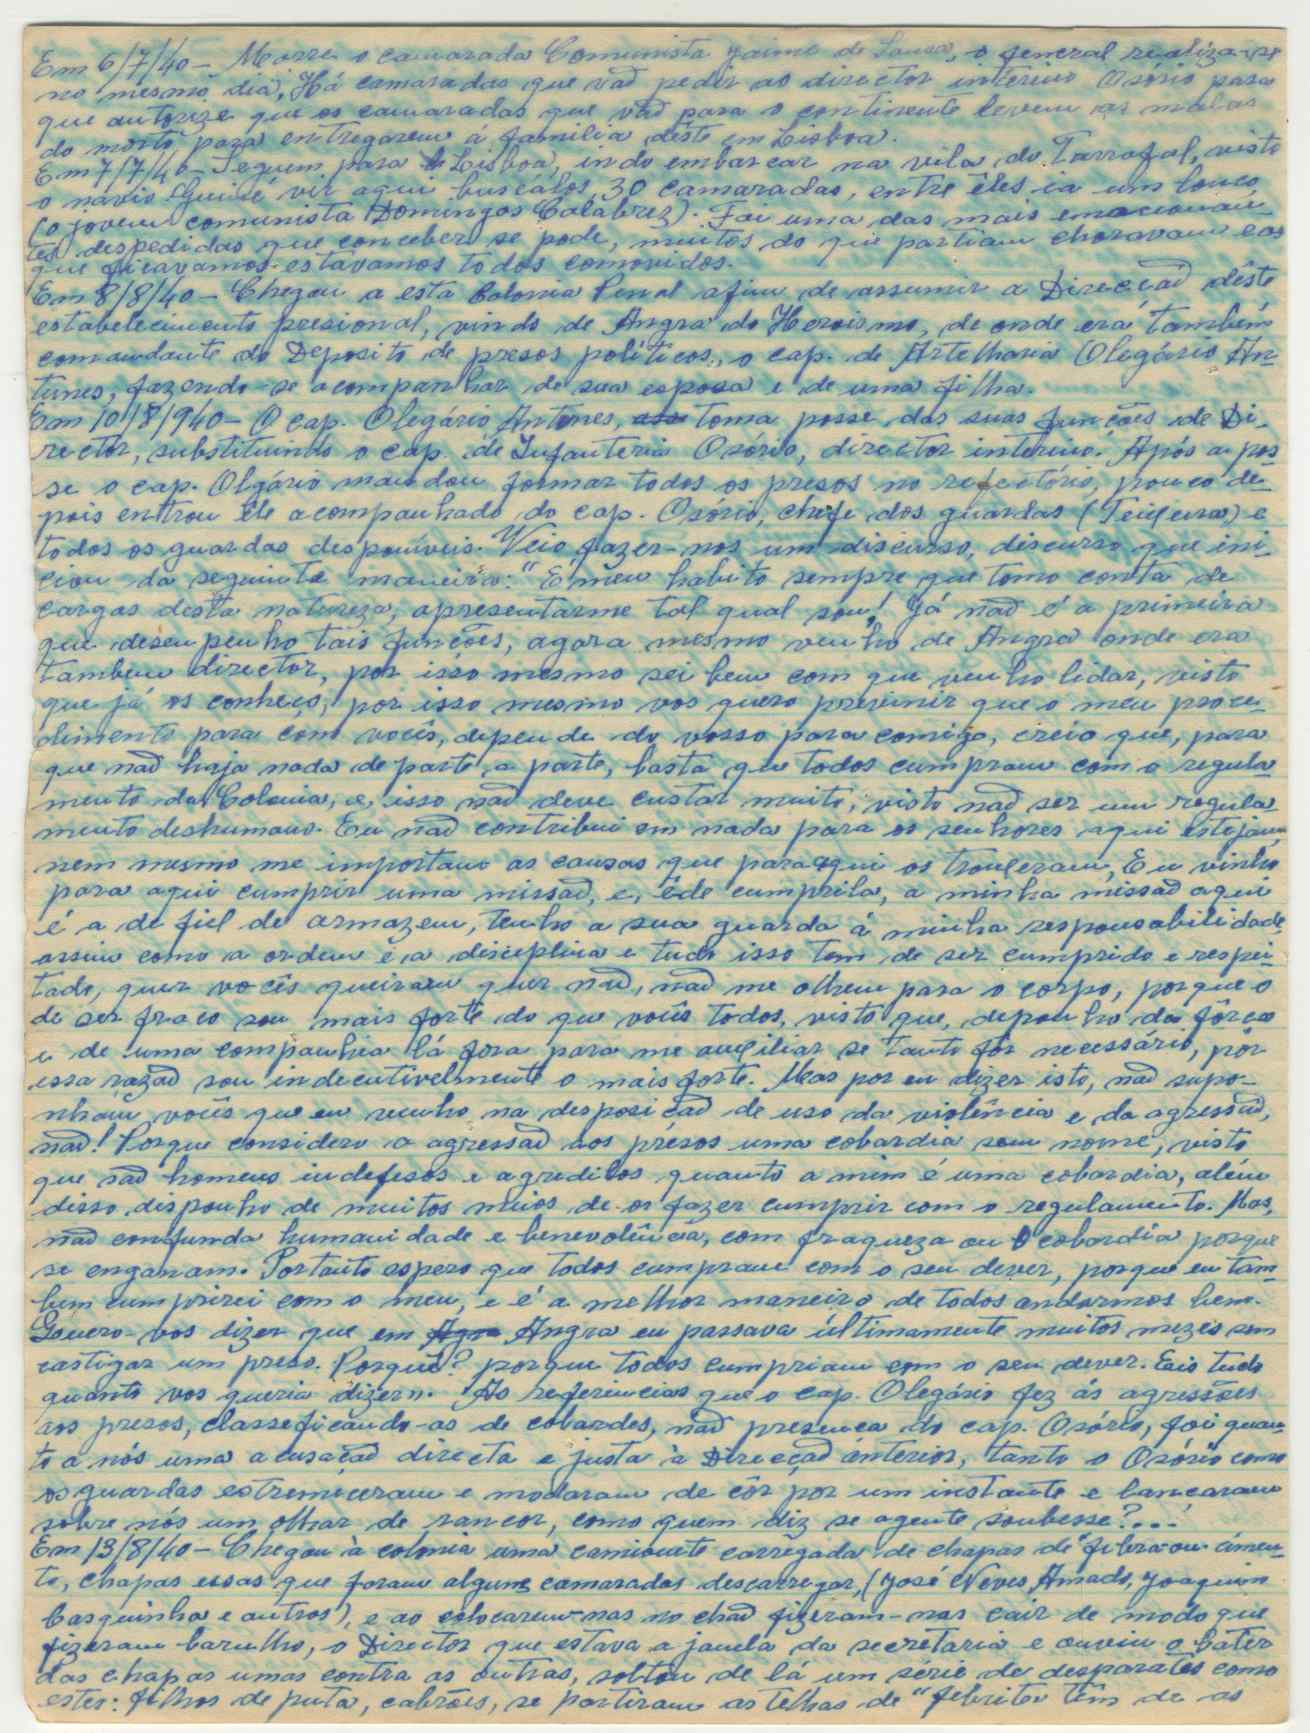 Em 6/7/40 - Morre o camarada Comunista Jaime de Sousa, o feneral realiza-se
no mesmo dia. Há camaradas que vaõ pedir ao director interino Osório para
que autorize que os camaradas que vaõ para o continente levem as malas
do morto para entregarem á familia deste em Lisboa.
Em 7/7/40 - Seguem para Lisboa, indo embarcar na vila do Tarrafal, visto
o navio Guiné vir aqui buscálos, 30 camaradas, entre êles ia um louco
(o jovem comunista Domingos Calabrez). Foi uma das mais emocionan-
tes despedidas que conceber se pode, muitos do que partiam choravam e os
que ficavamos estávamos todos comovidos.
Em 8/8/40 - Chegou a esta Colonia Penal afim de assumir a Direcçaõ dêste
estabelecimento presional, vindo de Angra do Heroismo, de onde era também
comandante do Deposito de presos políticos, o cap. de Artelharia Olegário An-
tunes, fazendo-se acompanhar de sua esposa e de uma filha.
Em 10/8/940 - O cap. Olegário Antones, toma posse das suas funcões de Di-
rector, substituindo o cap. de Infanteria Osório, director interino. Após a pos-
se o cap. Olgário mandou formar todos os presos no refectório, pouco de-
pois entrou êle acompanhado do cap. Osório, chefe dos guardas (Teixeira) e
todos os guardas desponíveis. Veio fazer-nos um discurso, discurso que ini-
ciou da seguinte maneira: "É meu habito sempre que tomo conta de
cargos desta natureza, apresentarme tal qual sou! Já naõ é a primeira
que desempenho tais funcões, agora mesmo venho de Angra onde era
tambem director, por isso mesmo sei bem com que venho lidar, visto
que já os conheço, por isso mesmo vos quero previnir que o meu proce-
dimento para com vocês, depende do vosso para comigo, creio que, para
que naõ haja nada de parte a parte, basta que todos cumpram com o regula-
mento da Colonia, e, isso naõ deve custar muito, visto naõ ser um regula-
mento deshumano. Eu naõ contribui em nada para os senhores aqui estejam
nem mesmo me importam as causas que para aqui os trouxeram, Eu vinho
para aqui cumprir uma missaõ, e, éde cumprila, a minha missaõ aqui
é a de fiel de armazem, tenho a sua guarda á minha responsabilidade
assim como a ordem e a disciplina e tudo isso tem de ser cumprido e respei-
tado, quer vocês queiram quer naõ, naõ me olhem para o corpo, porque o
de ser fraco sou mais forte do que vocês todos, visto que, deponho da fôrça
e de uma companhia lá fora para me auxiliar se tanto fôr necessário, pôr
essa razaõ sou indecutivelmente o mais forte. Mas por eu dizer isto, naõ supo-
nham vocês que eu venho na desposiçaõ de uso da violência e da agressaõ,
naõ! Porque considero a agressaõ aos présos uma cobardia sem nome, visto
que saõ homens indefesos e agredilos quanto a mim é uma cobardia, além
disso disponho de muitos meios de os fazer cumprir com o regulamento. Mas,
naõ confunda humanidade e benevolência, com fraqueza ou cobardia porque
se enganam. Portanto espero que todos cumpram com o seu dever, porque eu tam-
bem cumprirei com o meu, e é a melhor maneira de todos andarmos bem.
Quero-vos dizer que em Angra eu passava últimamente muitos mezes sem
castigar um preso. Porquê? porque todos cumpriam com o seu dever. Eis tudo
quanto vos queria dizer". As referencias que o cap. Olegário fez ás agressões
aos presos, classeficando-as de cobardes, naõ presenca do cap. Osório, foi quan-
to a nós uma acusaçaõ directa e justa à Direcçaõ ánterior, tanto o Osório como
os guardas estremeceram e modaram de côr por um instante e lancaram
sobre nós um olhar de rancor, como quem diz se agente soubesse?...
Em 13/8/40 - Chegou à colonia uma camionete carregada de chapas de fibra ou cimen-
to, chapas essas que foram alguns camaradas descarregar, (José Neves Amado, Joaquim
Casquinha e outros), e ao colocarem-nas no chaõ fizeram-nas cair de modo que
fizeram barulho, o Director que estava a janela da secretaria e ouviu o bater
das chapas umas contra as outras, soltou de lá um série de desparates como
estes: filhos de puta, cabrões, se partiram as telhas de "febrite" têm de as